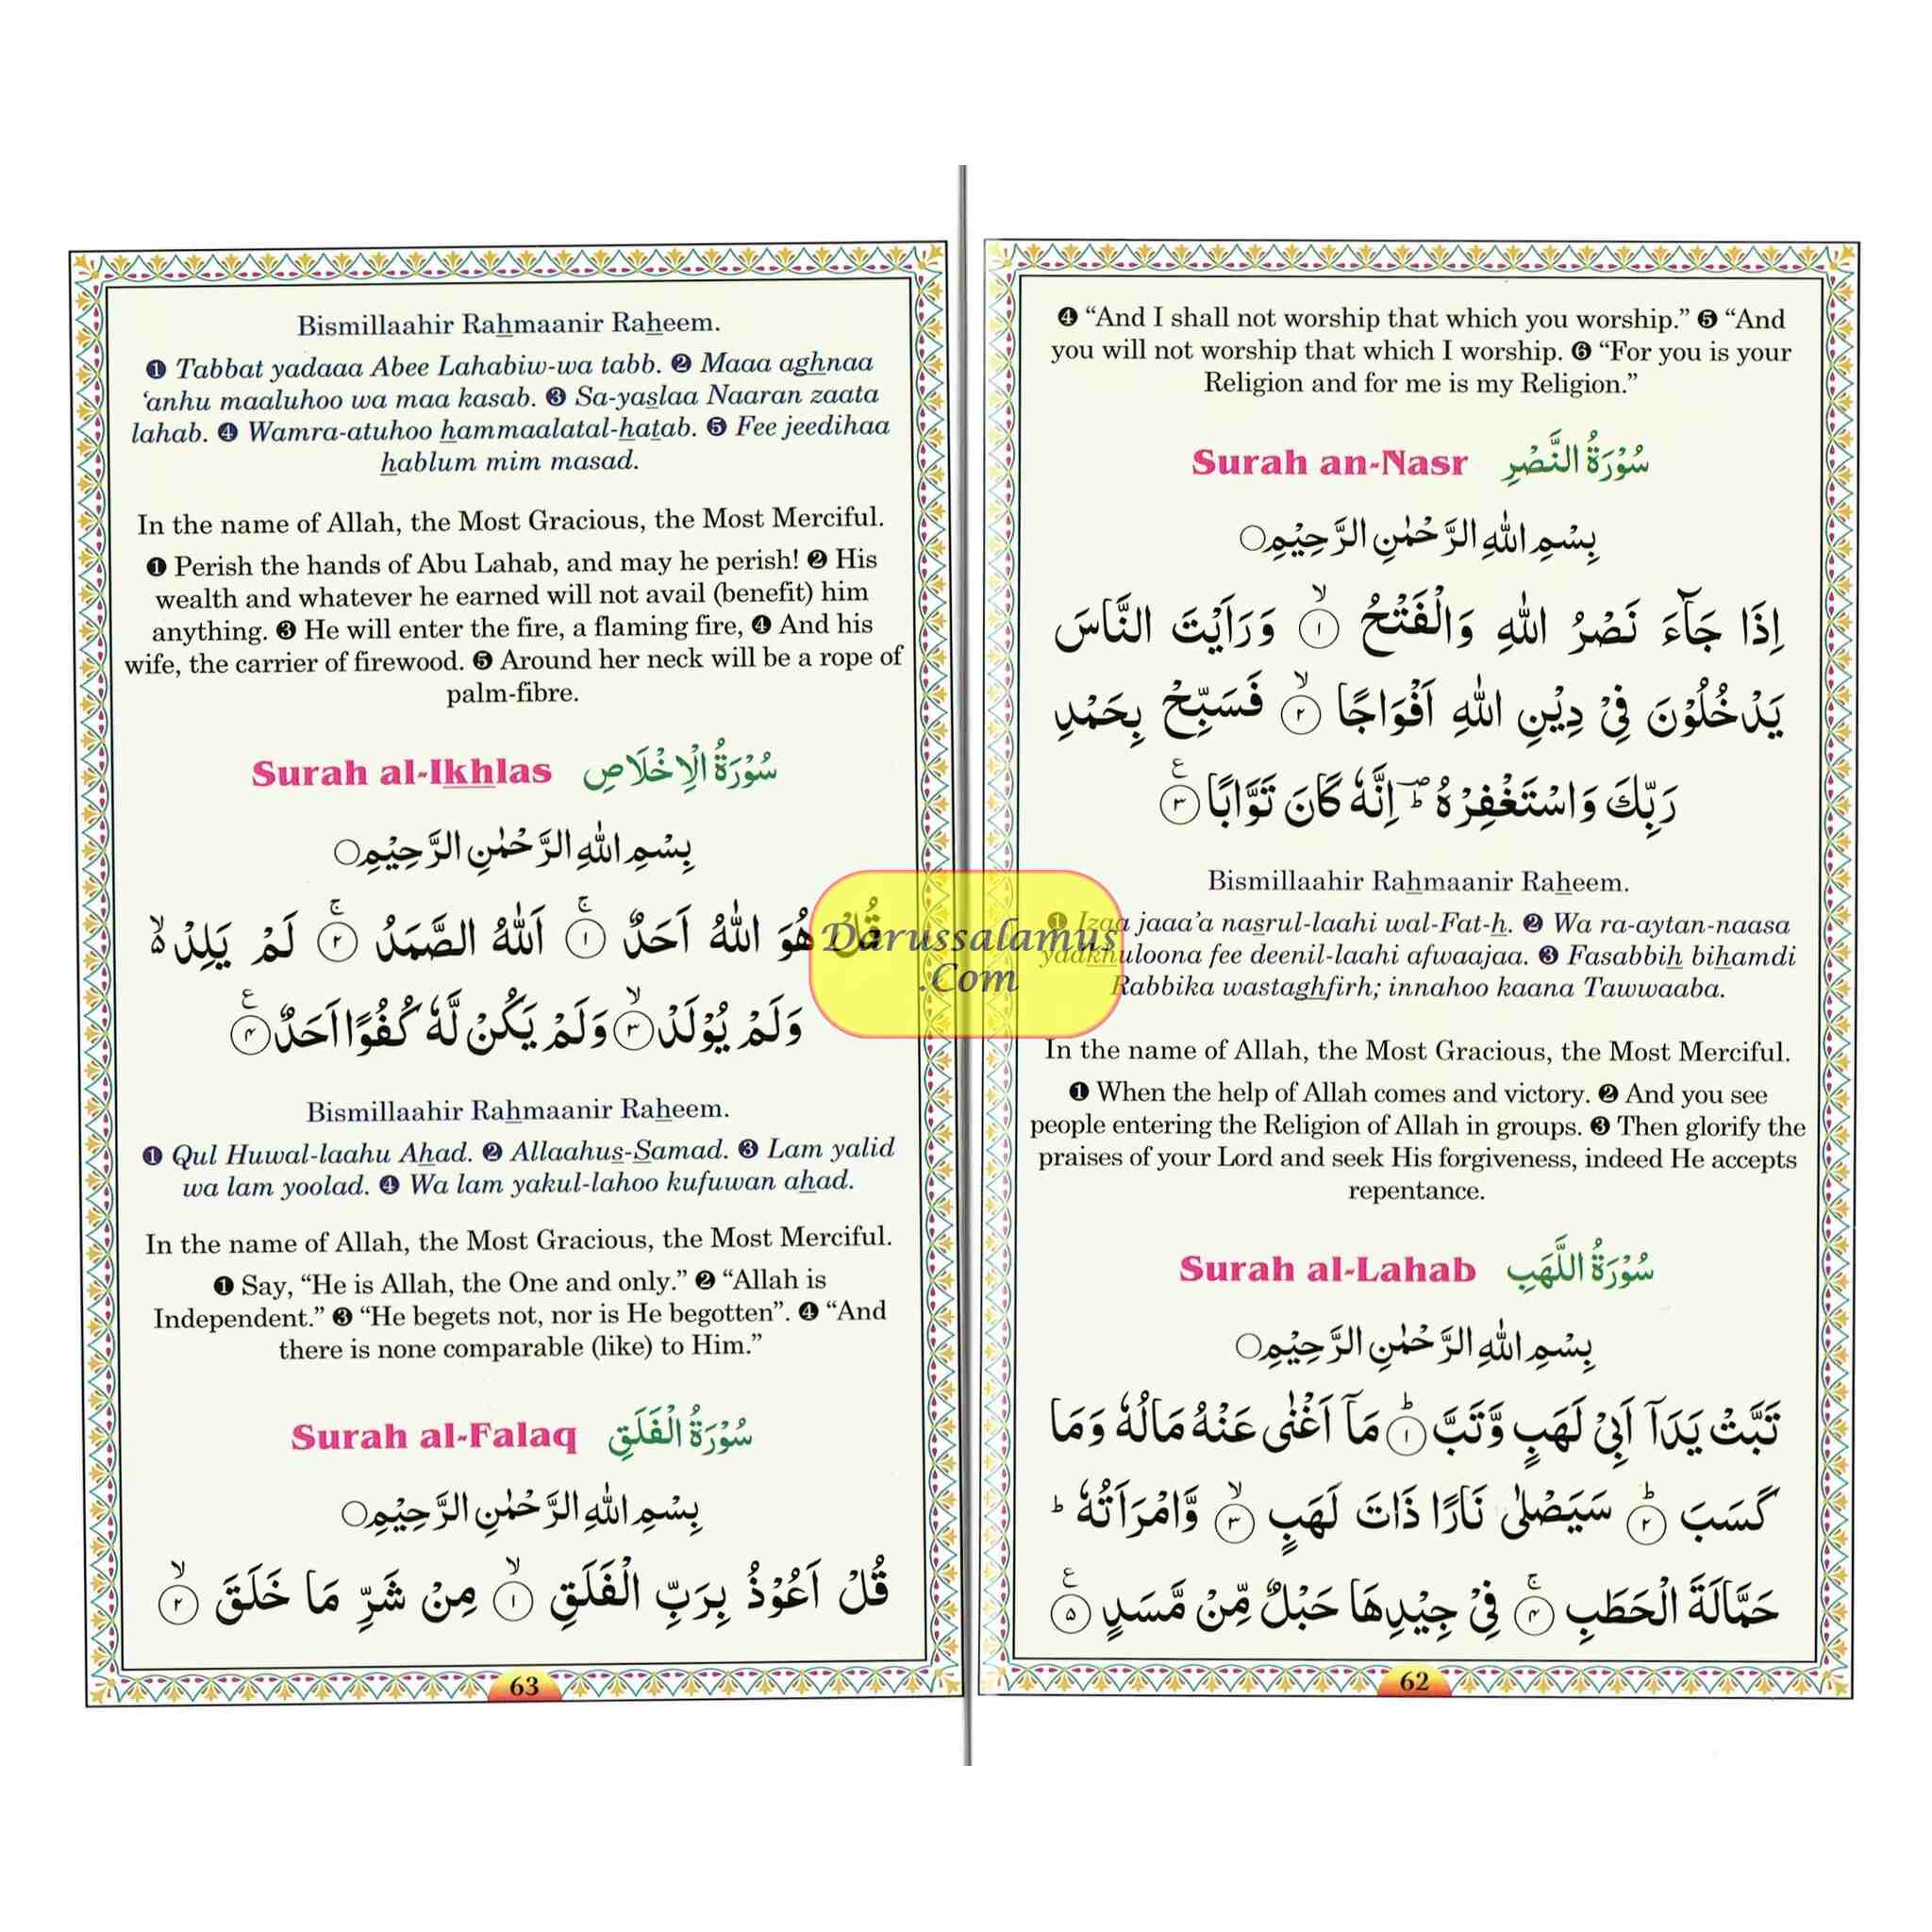 ❹ “And I shall not worship that which you worship.” ❺ “And
you will not worship that which I worship. ❻ “For you is your
Religion and for me is my Religion.”
Surah an-Nasr سُوْرَةُ النَّصْرِ
بِسْمِ اللّٰهِ الرَّحْمٰنِ الرَّحِيْمِ○
اِذَا جَآءَ نَصْرُ اللّٰهِ وَالْفَتْحُ ۙ﴿۱﴾ وَرَاَيْتَ النَّاسَ
يَدْخُلُوْنَ فِيْ دِيْنِ اللّٰهِ اَفْوَاجًا ۙ﴿۲﴾ فَسَبِّحْ بِحَمْدِ
رَبِّكَ وَاسْتَغْفِرْهُ ؕؔ اِنَّهٗ كَانَ تَوَّابًا ﴿۳﴾ ع
Bismillaahir Rahmaanir Raheem.
❶ Izaa jaaa’a nasrul-laahi wal-Fat-h. ❷ Wa ra-aytan-naasa
yadkhuloona fee deenil-laahi afwaajaa. ❸ Fasabbih bihamdi
Rabbika wastaghfirh; innahoo kaana Tawwaaba.
In the name of Allah, the Most Gracious, the Most Merciful.
❶ When the help of Allah comes and victory. ❷ And you see
people entering the Religion of Allah in groups. ❸ Then glorify the
praises of your Lord and seek His forgiveness, indeed He accepts
repentance.
Surah al-Lahab سُوْرَةُ اللَّهَبِ
بِسْمِ اللّٰهِ الرَّحْمٰنِ الرَّحِيْمِ○
تَبَّتْ يَدَآ اَبِيْ لَهَبٍ وَّتَبَّ ؕ﴿۱﴾ مَآ اَغْنٰى عَنْهُ مَالُهٗ وَمَا
كَسَبَ ؕ﴿۲﴾ سَيَصْلٰى نَارًا ذَاتَ لَهَبٍ ۙ﴿۳﴾ وَّامْرَاَتُهٗ ؕ
حَمَّالَةَ الْحَطَبِ ۚ﴿۴﴾ فِيْ جِيْدِهَا حَبْلٌ مِّنْ مَّسَدٍ ﴿۵﴾ ع
62
Bismillaahir Rahmaanir Raheem.
❶ Tabbat yadaaa Abee Lahabiw-wa tabb. ❷ Maaa aghnaa
‘anhu maaluhoo wa maa kasab. ❸ Sa-yaslaa Naaran zaata
lahab. ❹ Wamra-atuhoo hammaalatal-hatab. ❺ Fee jeedihaa
hablum mim masad.
In the name of Allah, the Most Gracious, the Most Merciful.
❶ Perish the hands of Abu Lahab, and may he perish! ❷ His
wealth and whatever he earned will not avail (benefit) him
anything. ❸ He will enter the fire, a flaming fire, ❹ And his
wife, the carrier of firewood. ❺ Around her neck will be a rope of
palm-fibre.
Surah al-Ikhlas سُوْرَةُ الْاِخْلَاصِ
بِسْمِ اللّٰهِ الرَّحْمٰنِ الرَّحِيْمِ○
قُلْ هُوَ اللّٰهُ اَحَدٌ ۚ﴿۱﴾ اَللّٰهُ الصَّمَدُ ۚ﴿۲﴾ لَمْ يَلِدْ ۙ۬
وَلَمْ يُوْلَدْ ۙ﴿۳﴾ وَلَمْ يَكُنْ لَّهٗ كُفُوًا اَحَدٌ ﴿۴﴾ ع
Bismillaahir Rahmaanir Raheem.
❶ Qul Huwal-laahu Ahad. ❷ Allaahus-Samad. ❸ Lam yalid
wa lam yoolad. ❹ Wa lam yakul-lahoo kufuwan ahad.
In the name of Allah, the Most Gracious, the Most Merciful.
❶ Say, “He is Allah, the One and only.” ❷ “Allah is
Independent.” ❸ “He begets not, nor is He begotten”. ❹ “And
there is none comparable (like) to Him.”
Surah al-Falaq سُوْرَةُ الْفَلَقِ
بِسْمِ اللّٰهِ الرَّحْمٰنِ الرَّحِيْمِ○
قُلْ اَعُوْذُ بِرَبِّ الْفَلَقِ ۙ﴿۱﴾ مِنْ شَرِّ مَا خَلَقَ ۙ﴿۲﴾
63
Darussalamus
.Com